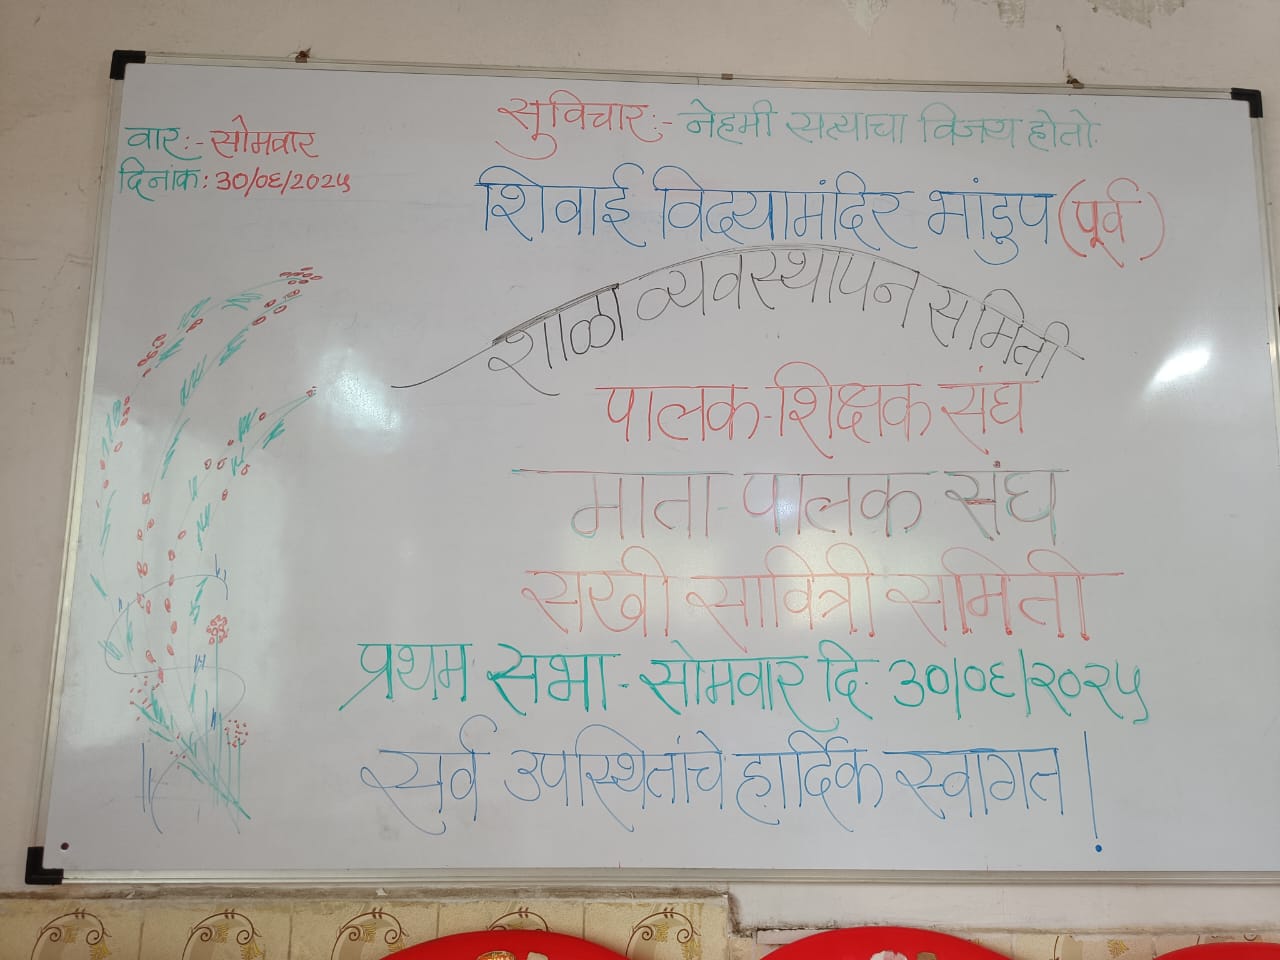 सुविचार:- नेहमी सत्याचा विजय होतो.
वार:- सोमवार
दिनांक: ३०/०६/२०२५
शिवाई विद्यामंदिर भांडुप (पूर्व)
शाळा व्यवस्थापन समिती
पालक-शिक्षक संघ
माता-पालक संघ
सखी सावित्री समिती
प्रथम सभा - सोमवार दि. ३०/०६/२०२५
सर्व उपस्थितांचे हार्दिक स्वागत!